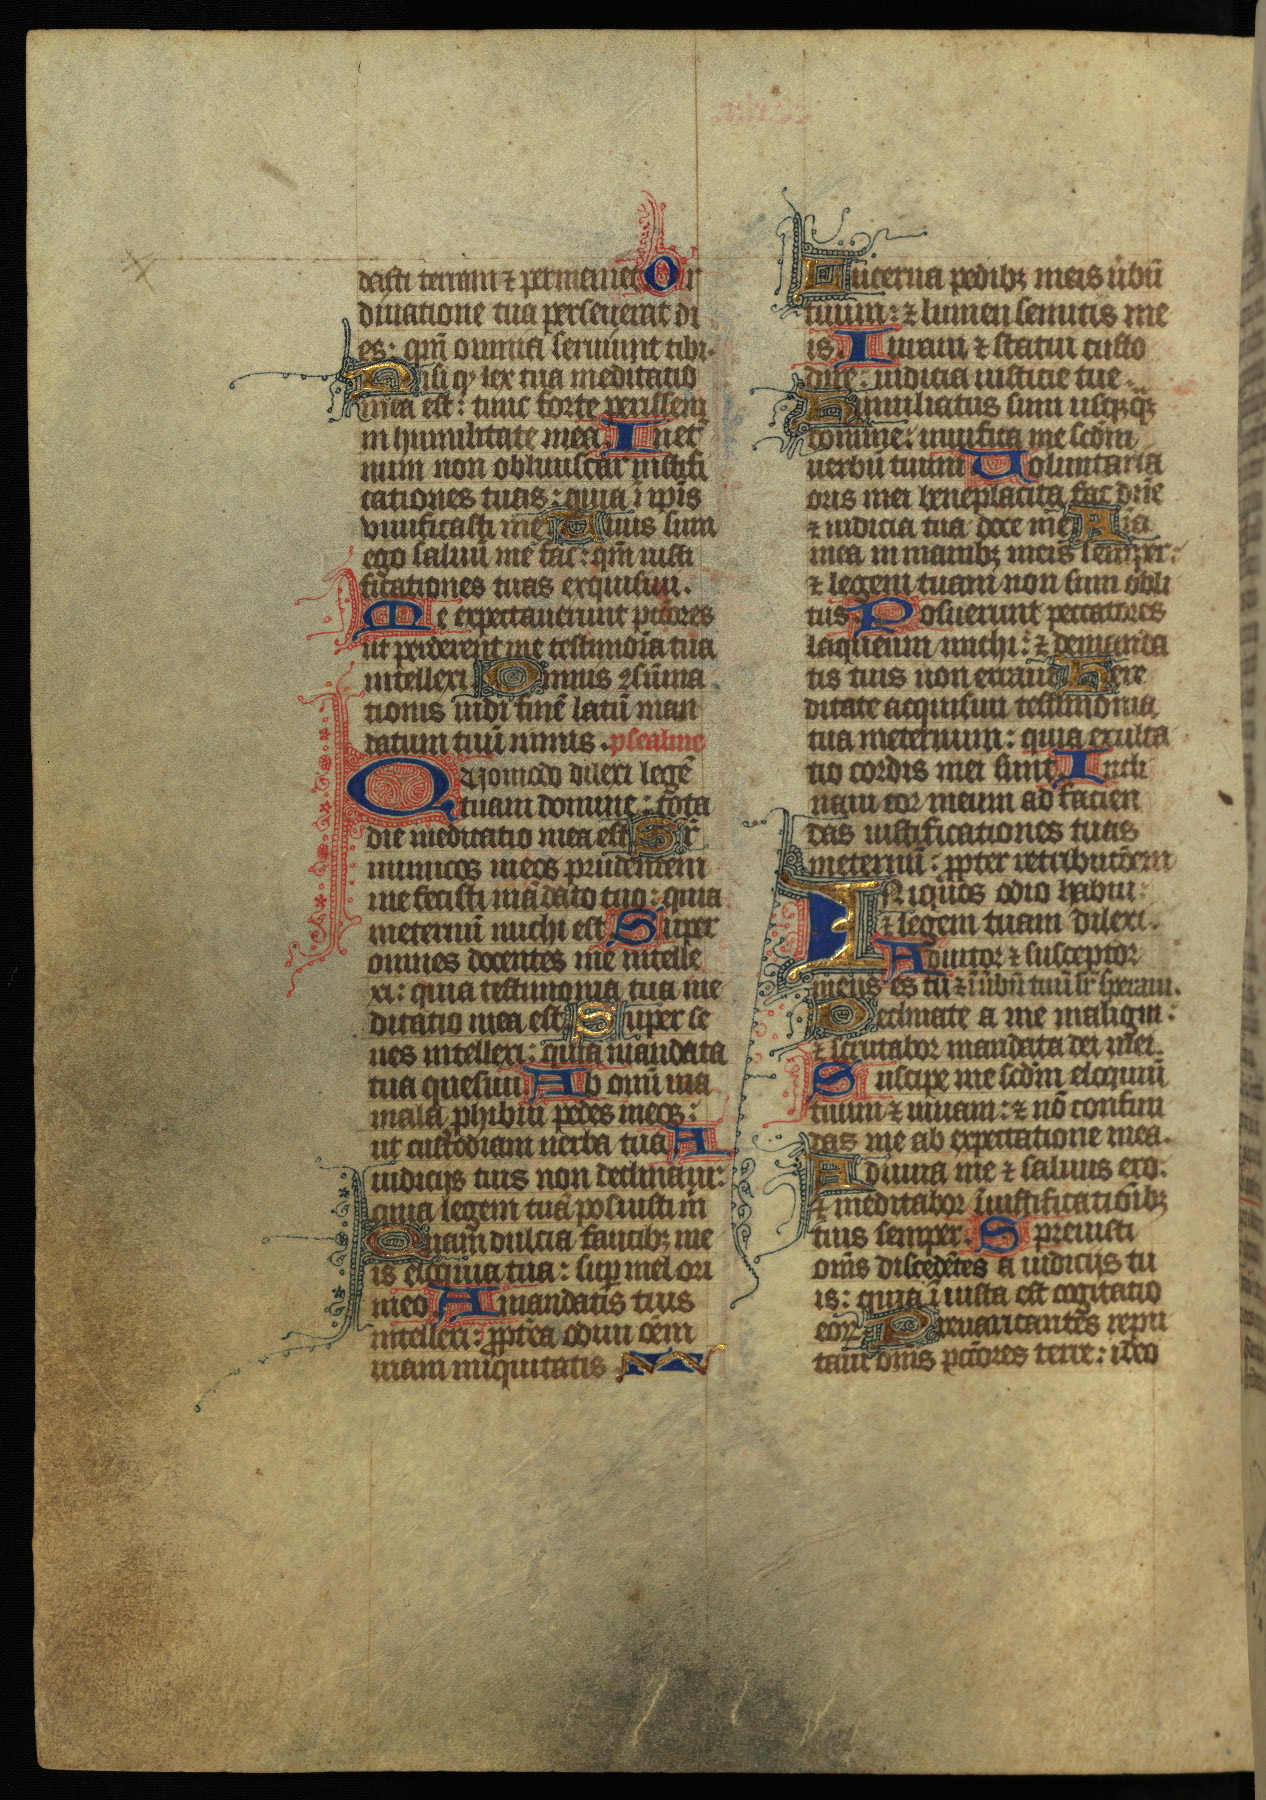 dasti terram ⁊ permanet Or
dinatione tua perseuerat di
es: qm̄ omnia seruiunt tibi.
Nisi qꝙ lex tua meditatio
mea est: tunc forte perissem
in humilitate mea. In et̄
num non obliuiscar iustifi
cationes tuas: quia ī ip̄is
viuificasti me Tuus sum
ego saluū me fac: qm̄ iusti
ficationes tuas exquisiui.
Me expectauerunt pc̄cores
ut perderent me testimōia tua
intellexi Omnis ꝯsūma
tionis uidi finē latū man
datum tuū nimis. psealmꝰ
Quomodo dilexi legē
tuam domine: tota
die meditatio mea est Sr̄
inimicos meos prudentem
me fecisti mādato tuo: quia
ineternū michi est Super
omnes docentes me intelle
xi: quia testimonia tua me
ditatio mea est Super se
nes intellexi: quia mandata
tua quesiui Ab omī uia
mala ꝓhibui pedes meos:
ut custodiam uerba tua A
iudicijs tuis non declinaui:
quia legem tuā posuisti m̄
Quam dulcia faucibꝫ me
is eloquia tua: sup̄ mel ori
meo A mandatis tuis
intellexi: ꝓpt̄ea odiui oēm
uiam iniquitatis
Lucerna pedibꝫ meis ūbū
tuum: ⁊ lumen semitis me
is. Iuraui ⁊ statui custo
dire: iudicia iusticie tue.
Humiliatus sum usqꝫqꝫ
domine: uiuifica me scd̄m
uerbū tuum Uoluntaria
oris mei beneplacita fac dn̄e
⁊ iudicia tua doce me Aīa
mea in manibꝫ meis semper:
⁊ legem tuam non sum obli
tus Posuerunt peccatores
laqueum michi: ⁊ de manda
tis tuis non erraui Here
ditate acquisiui testimonia
tua ineternum: quia exulta
tio cordis mei sunt Incli
naui cor meum ad facien
das iustificationes tuas
ineternū: ꝓpter retributōem
INiquos odio habui:
⁊ legem tuam dilexi.
Adiutor ⁊ susceptor
meus es tu ⁊ ī ūbū tuū sr̄ sperauī.
Declinate a me maligni:
⁊ scrutabor mandata dei mei.
Suscipe me scd̄m eloquiū
tuum ⁊ uiuam: ⁊ nō confun
das me ab expectatione mea.
Adiuua me ⁊ saluus ero:
⁊ meditabor ī iustificatiōibꝫ
tuis semper. Spreuisti
om̄s discedētes a iudicijs tu
is: quia īiusta est cogitatio
eoꝝ Preuaricantes repu
taui om̄s pc̄cores terre: ideo